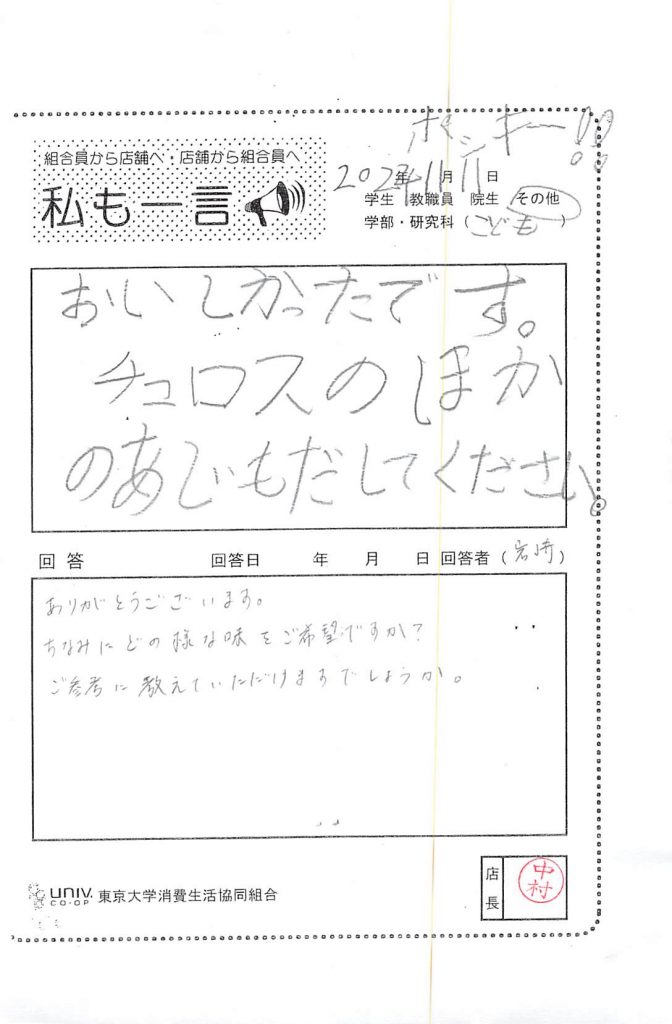 ポッキー!!
組合員から店舗へ・店舗から組合員へ
私も一言
2024年11月11日
学生 教職員 院生 その他
学部・研究科(こども)
おいしかったです。
チュロスのほか
のあじもだしてください。
回答 回答日 年 月 日 回答者(岩崎)
ありがとうございます。
ちなみにどの様な味をご希望ですか?
ご参考に教えていただけますでしょうか。
店長
中村
UNIV. CO-OP 東京大学消費生活協同組合